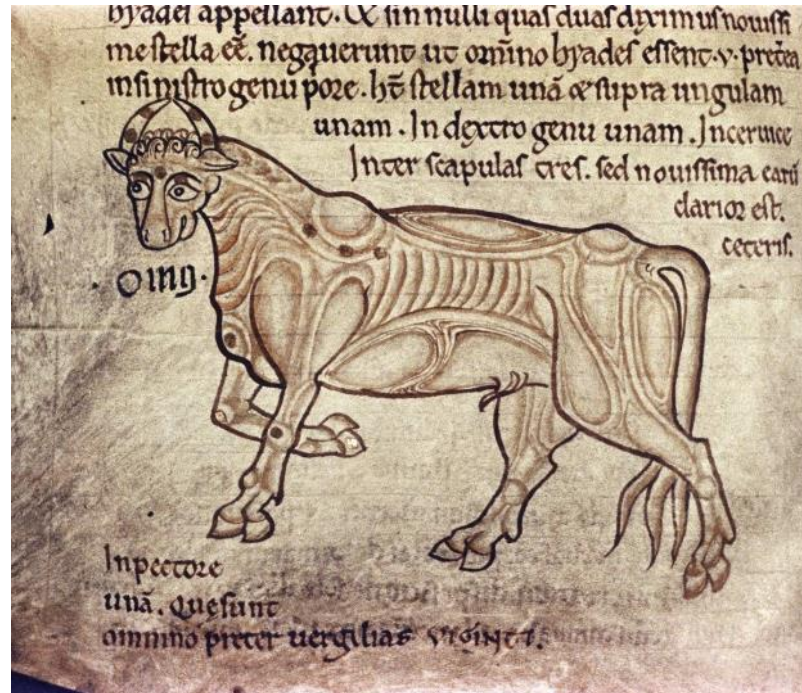 hyadeſ appellant. Ex ſin nulli quaſ duaſ diximuſ nouiſſi
me ſtella eē. negauerunt ut omīno hyadeſ eſſent. v. pret̄ea
in ſiniſtro genu pore. ht̄ ſtellam unā & ſupra ungulam
unam. In dextro genu unam. In ceruice
Inter ſcapulaſ treſ. ſed nouiſſima earū
clarior eſt.
ceteriſ.
Om̄ſ.
In pectore
unā. Que ſunt
omnino preter uergiliaſ VIGINTI.